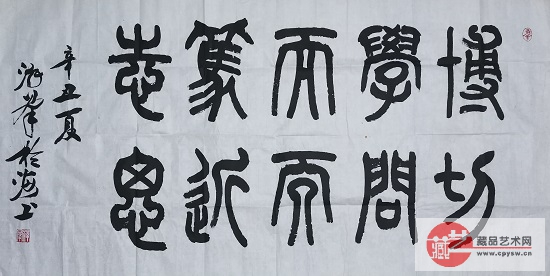 博學而篤志
切問而近思
辛丑夏
於海上
藏品艺术网
www.cpysw.cn